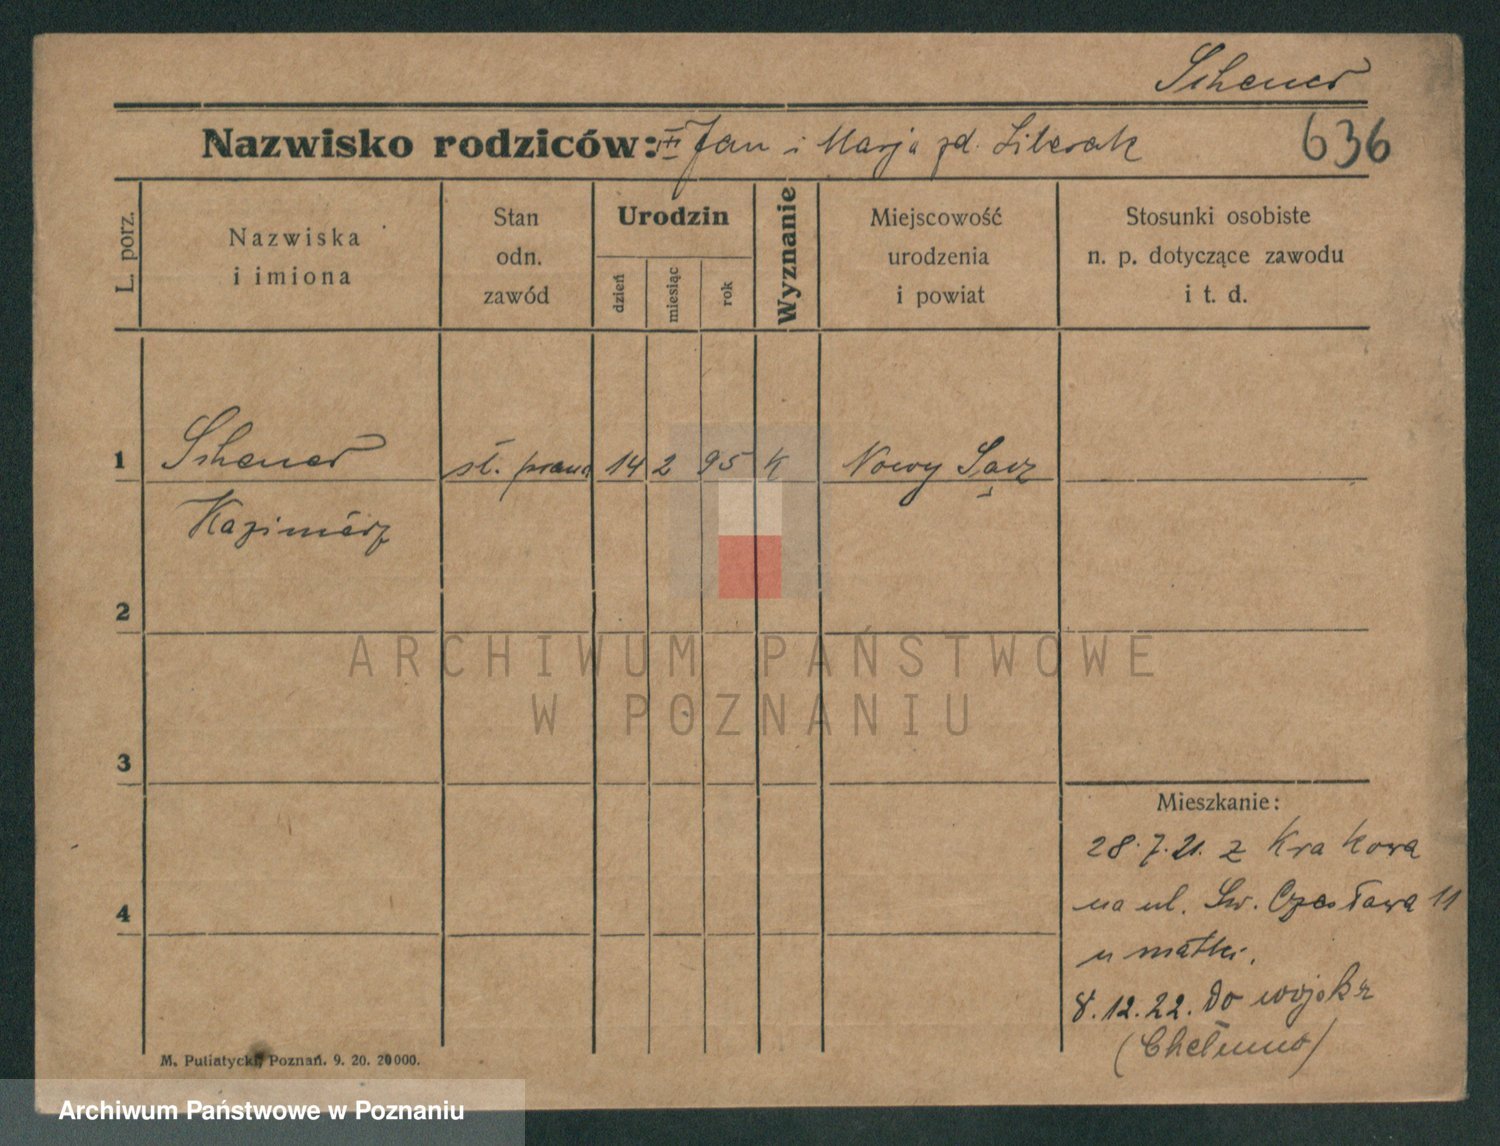 Scheuer
Nazwisko rodziców: III Jan i Marja zd. Liberak
636
L. porz.
Nazwiska
i imiona
Stan
odn.
zawód
Urodzin
dzień
miesiąc
rok
Wyznanie
Miejscowość
urodzenia
i powiat
Stosunki osobiste
n. p. dotyczące zawodu
i t. d.
1 Scheuer st. praw 14 2 95 k Nowy Sącz
Kazimierz
2
ARCHIWUM PAŃSTWOWE
W POZNANIU
3
Mieszkanie:
28.7.21. z Krakowa
na ul. Św. Czesława 11
4
u matki.
8.12.22. Do wojska
(Chełmno)
M. Putiatycki, Poznań. 9. 20. 20000.
Archiwum Państwowe w Poznaniu